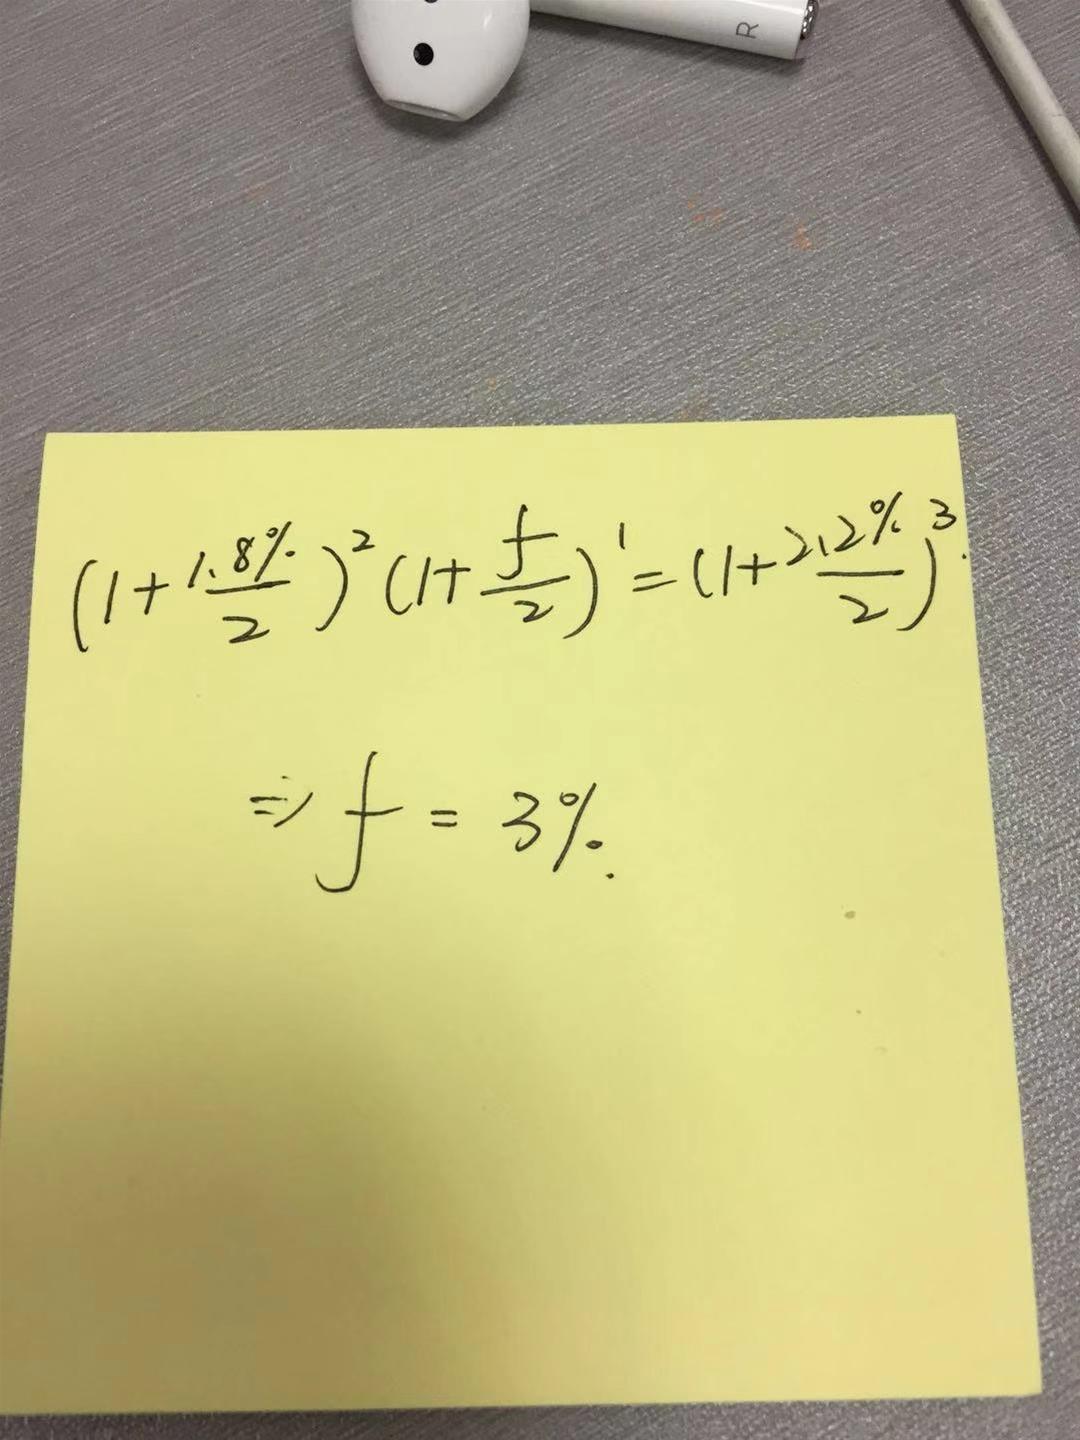 R
(1+1.8%/2)²(1+f/2)¹=(1+2.2%/2)³.
⇒ f = 3%.